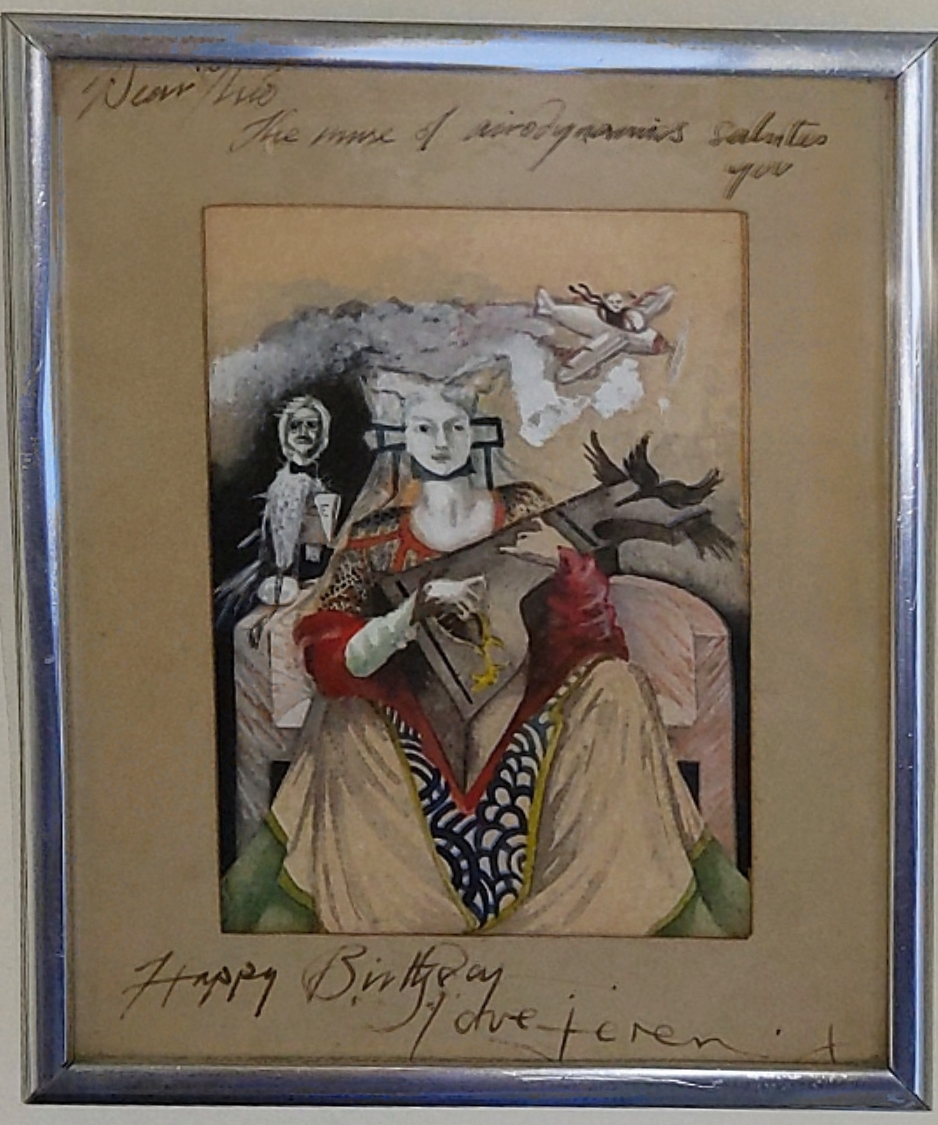 Dear
The muse of airodynamics salutes
you
E
Happy Birthday
love